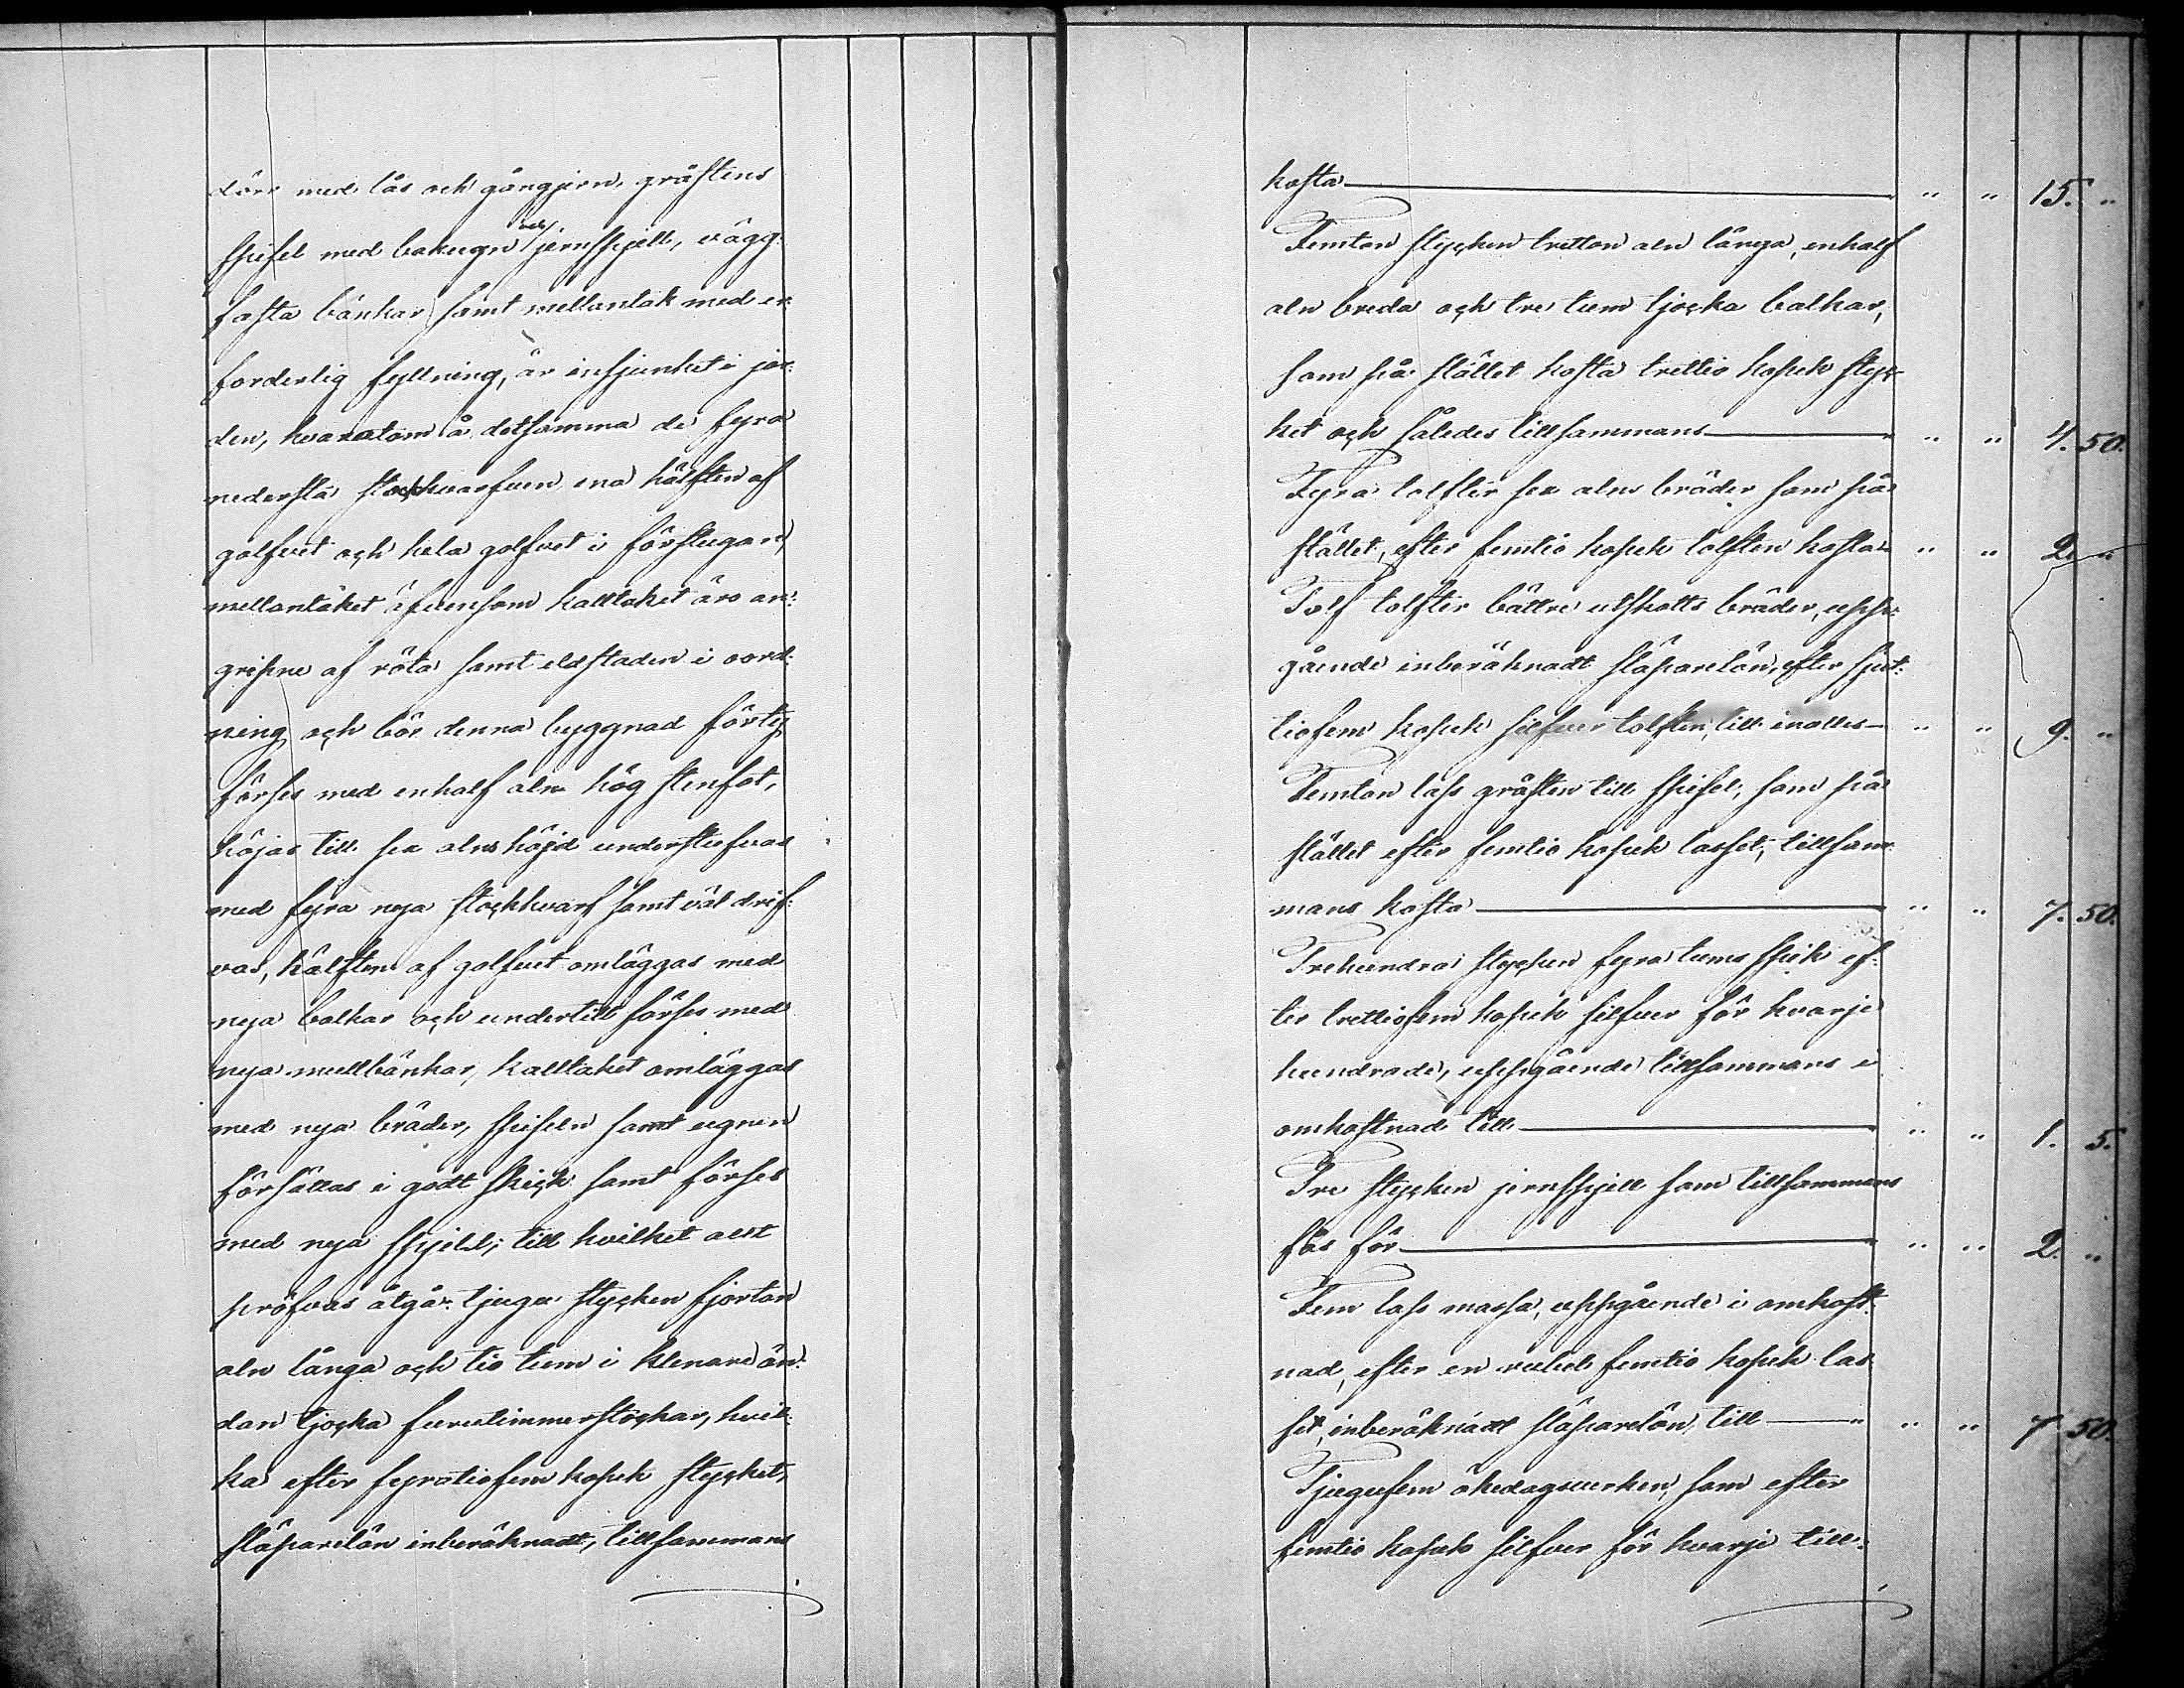 dörr med lås och gångjern, gråstens
spisel med bakugn och jernspjell, vägg-
fasta bänkar samt mellantak med er-
forderlig fyllning, är insjunket i jor-
den, hvarutom å detsamma de fyra
nedersta stockhvarfven ena hälften af
golfvet och hela golfvet i förstugan,
mellantaket äfvensom kalltaket äro an-
gripne af röta samt eldstaden i oord-
ning och bör denna byggnad förty
förses med enhalf aln hög stenfot,
höjas till sex alns höjd understufvas
med fyra nya stockhvarf samt väl drif-
vas, hälften af golfvet omläggas med
nya balkar och undertill förses med
nya mullbänkar, kalltaket omläggas
med nya bräder, spiseln samt ugnen
försättas i godt skick samt förses
med nya spjell; till hvilket allt
pröfvas åtgå: tjugu stycken fjorton
aln långa och tio tum i klenare än-
dan tjocka furutimmerstockar, hvil-
ka efter fyratiofem kopek stycket,
släparelön inberäknadt, tillsammans
kosta " " 15. "
Femton stycken tretton aln långa, enhalf
aln breda och tre tum tjocka balkar,
som på stället kosta trettio kopek styc-
ket och således tillsammans " " 4. 50.
Fyra tolfter sex alns bräder som på
stället, efter femtio kopek tolften kosta " " 2. "
Tolf tolfter bättre utskotts bräder, upp-
gående inberäknadt släparelön, efter sjut-
tiofem kopek silfver tolften, till inalles " " 9. "
Femton lass gråsten till spisel, som på
stället efter femtio kopek lasset, tillsam-
mans kosta " " 7. 50.
Trehundra stycken fyra tums spik ef-
ter trettiofem kopek silfver för hvarje
hundrade, uppgående tillsammans i
omkostnad till " " 1. 5.
Tre stycken jernspjell som tillsammans
fås för " " 2. "
Fem lass massa, uppgående i omkost-
nad, efter en rubel femtio kopek las-
set, inberäknadt släparelön, till " " 7 50.
Tjugufem ökedagsverken, som efter
femtio kopek silfver för hvarje till-